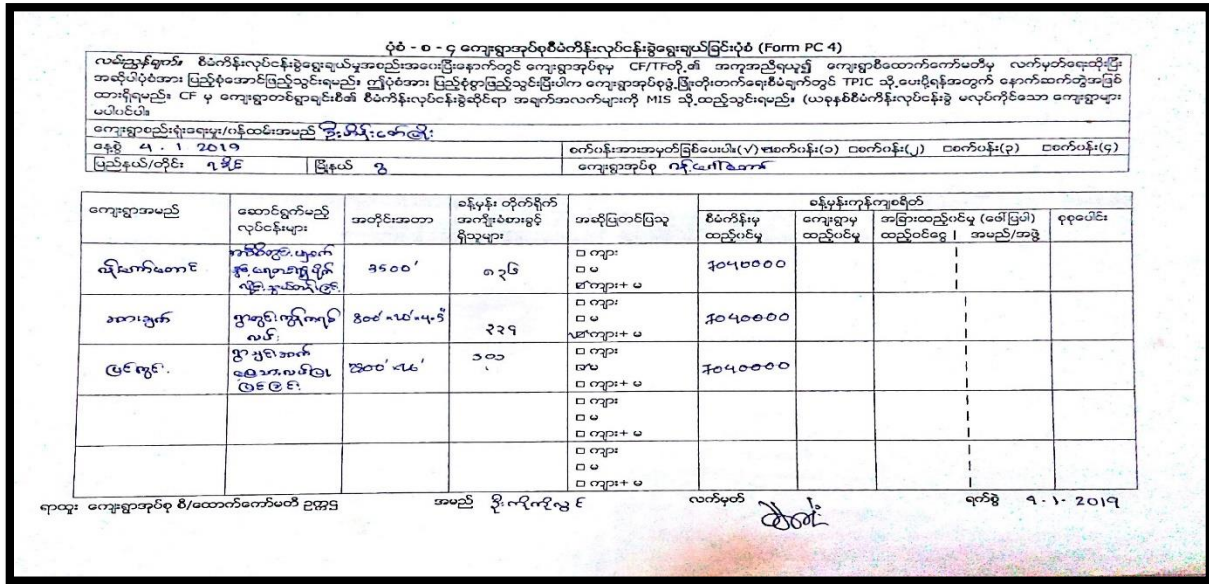 ပုံစံ - စ - ၄ ကျေးရွာအုပ်စုစီမံကိန်းလုပ်ငန်းခွဲရွေးချယ်ခြင်းပုံစံ (Form PC 4)
လမ်းညွှန်ချက်။ စီမံကိန်းလုပ်ငန်းခွဲရွေးချယ်မှုအစည်းအဝေးပြီးနောက်တွင် ကျေးရွာအုပ်စုမှ CF/TFတို့၏ အကူအညီရယူ၍ ကျေးရွာစီထောက်ကော်မတီမှ လက်မှတ်ရေးထိုးပြီး
အဆိုပါပုံစံအား ပြည့်စုံအောင်ဖြည့်သွင်းရမည်။ ဤပုံစံအား ပြည့်စုံစွာဖြည့်သွင်းပြီးပါက ကျေးရွာအုပ်စုဖွံ့ဖြိုးတိုးတက်ရေးစီမံချက်တွင် TPIC သို့ပေးပို့ရန်အတွက် နောက်ဆက်တွဲအဖြစ်
ထားရှိရမည်။ CF မှ ကျေးရွာတစ်ရွာချင်းစီ၏ စီမံကိန်းလုပ်ငန်းခွဲဆိုင်ရာ အချက်အလက်များကို MIS သို့ထည့်သွင်းရမည်။ (ယခုနှစ်စီမံကိန်းလုပ်ငန်းခွဲ မလုပ်ကိုင်သော ကျေးရွာများ
မပါဝင်ပါ။
ကျေးရွာစည်းရုံးရေးမှူး/ဝန်ထမ်းအမည်
နေ့စွဲ 4 . 1 2019 စက်ဝန်းအားအမှတ်ခြစ်ပေးပါ။(√) စက်ဝန်း(၁) □စက်ဝန်း(၂) □စက်ဝန်း(၃) □စက်ဝန်း(၄)
ပြည်နယ်/တိုင်း ရခိုင် မြို့နယ် ဂွ ကျေးရွာအုပ်စု
ကျေးရွာအမည် ဆောင်ရွက်မည့် လုပ်ငန်းများ အတိုင်းအတာ ခန့်မှန်း တိုက်ရိုက် အကျိုးခံစားခွင့် ရှိသူများ အဆိုပြုတင်ပြသူ ခန့်မှန်းကုန်ကျစရိတ်
စီမံကိန်းမှ ထည့်ဝင်မှု ကျေးရွာမှ ထည့်ဝင်မှု အခြားထည့်ဝင်မှု (ဖော်ပြပါ) ထည့်ဝင်ငွေ | အမည်/အဖွဲ့ စုစုပေါင်း
3500' ၈၃၆ □ ကျား
□ မ
ကျား+ မ 7040000
□ ကျား
□ မ
ကျား+ မ ၃၃၅ 7040000
မြင်ကွင်း ၁၀၁ □ ကျား
မ
□ ကျား+ မ 7040000
□ ကျား
□ မ
□ ကျား+ မ
□ ကျား
□ မ
□ ကျား+ မ
ရာထူး ကျေးရွာအုပ်စု စီ/ထောက်ကော်မတီ ဥက္ကဌ အမည် ဦးကိုကိုလွင် လက်မှတ် ရက်စွဲ 4 . 1 . 2019